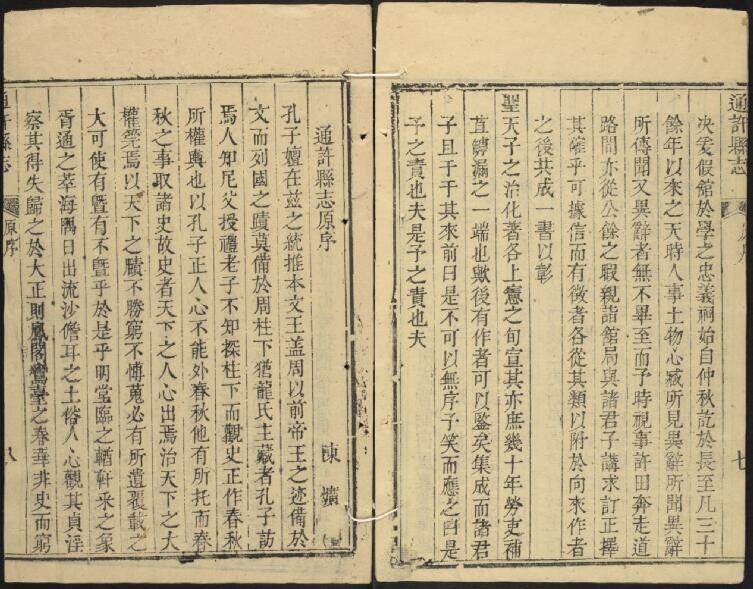 通許縣志
七
決爰假館於學之忠義祠始自仲秋訖於長至凡三十
餘年以來之天時人事土物心臧所見異辭所聞異辭
所傳聞又異辭者無不畢至而予時視事許田奔走道
路間亦從公餘之暇親詣館局與諸君子講求訂正擇
其確乎可據信而有徵者各從其類以附於向來作者
之後共成一書以彰
聖天子之治化著各上憲之旬宣其亦庶幾十年勞吏補
苴罅漏之一端也歟後有作者可以鑒矣集成而諸君
子且于于其來前曰是不可以無序予笑而應之曰是
予之責也夫是予之責也夫
通許縣志原序
陳爌
孔子嬗在茲之統推本文王蓋周以前帝王之迹備於
文而列國之蹟莫備於周柱下猶龍氏主藏者孔子訪
焉人知尼父授禮老子不知探柱下而觀史正作春秋
所權輿也以孔子正人心不能外春秋他有所托而春
秋之事取諸史故史者天下之人心出焉治天下之大
權筦焉以天下之賾不勝窮不慱蒐必有所遺覆載之
大可使有暨有不暨乎於是乎明堂臨之輶軒采之象
胥通之萃海隅日出流沙儋耳之土俗人心觀其貞淫
察其得失歸之於大正則鳳閣鸞臺之春華非史而窮
通許縣志
原序
八